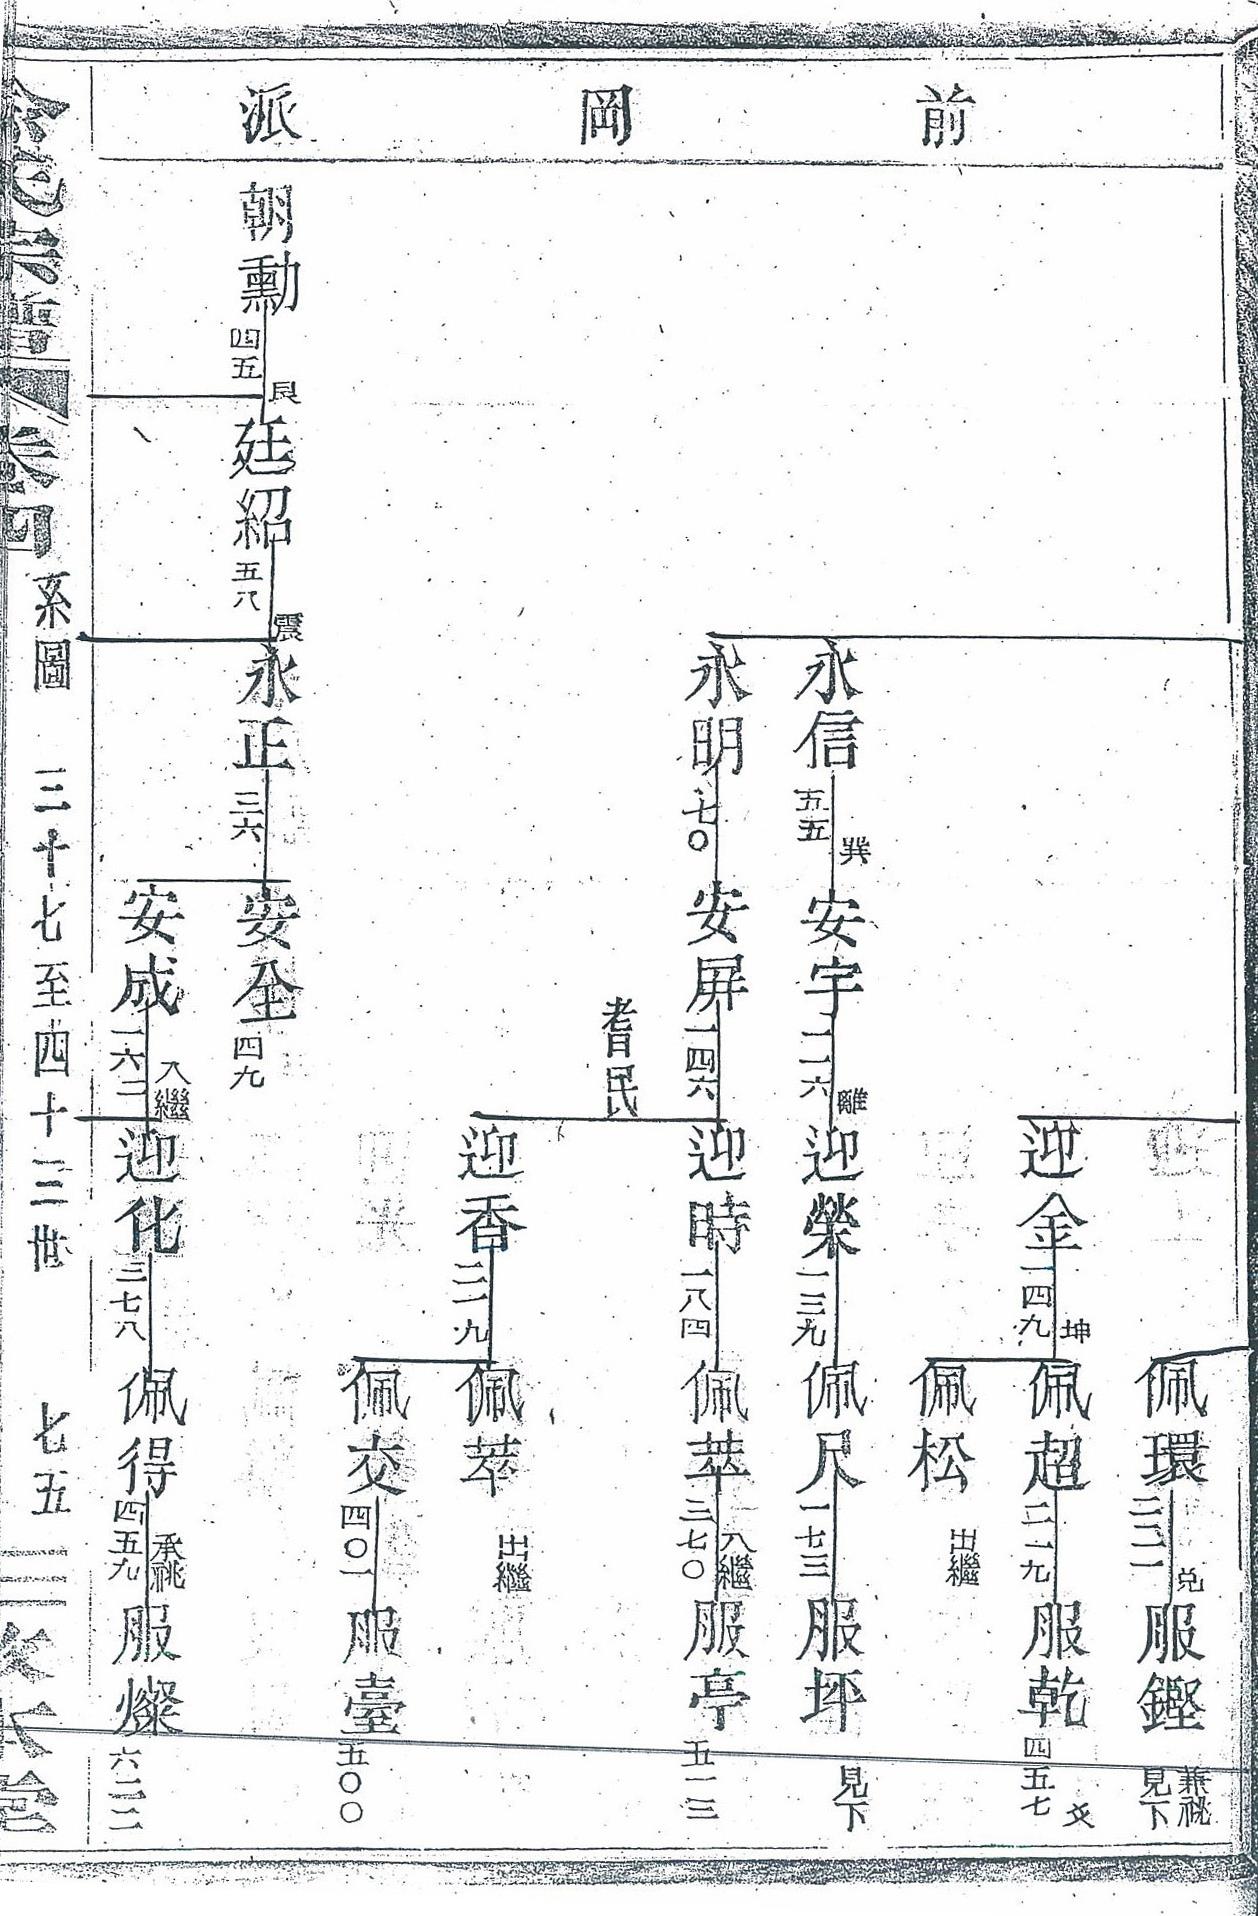 前岡派
佩環
二二一
兌
服鏗
兼祧
見下
迎金
一四九
坤
佩超
二一九
服乾
四五七
爻
佩松
出繼
永信
五五
巽
安宇
一一六
離
迎榮
一三九
佩尺
一七三
服坪
見下
永明
七〇
安屏
一四六
耆民
迎時
一八四
佩萃
三七〇
入繼
服亭
五一三
迎香
二一九
佩萃
出繼
佩交
四〇一
服臺
五〇〇
朝勳
四五
艮
廷紹
五八
震
永正
三六
安全
四九
安成
一六二
入繼
迎化
三七八
佩得
四五九
承祧
服燦
六二二
宗譜 卷四 系圖 三十七至四十三世 七五